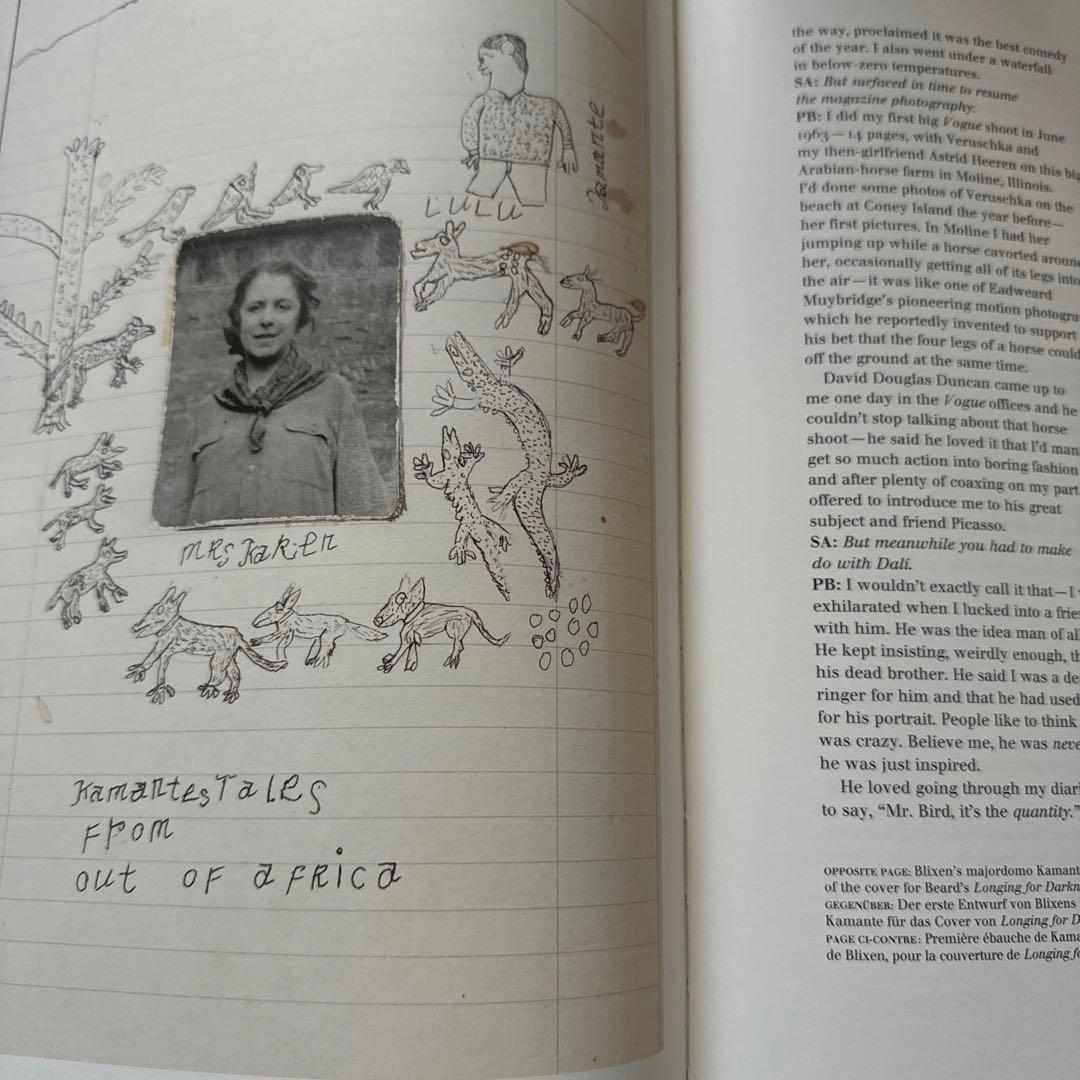 Kamante
LULU
MRS KaRiEn
KamantEs TaLES
FROM
OUt OF aFRica
the way, proclaimed it was the best comedy
of the year. I also went under a waterfall
in below-zero temperatures.
SA: But surfaced in time to resume
the magazine photography.
PB: I did my first big Vogue shoot in June
1963 — 14 pages, with Veruschka and
my then-girlfriend Astrid Heeren on this big
Arabian-horse farm in Moline, Illinois.
I'd done some photos of Veruschka on the
beach at Coney Island the year before —
her first pictures. In Moline I had her
jumping up while a horse cavorted around
her, occasionally getting all of its legs into
the air — it was like one of Eadweard
Muybridge's pioneering motion photogra
which he reportedly invented to support
his bet that the four legs of a horse could
off the ground at the same time.
David Douglas Duncan came up to
me one day in the Vogue offices and he
couldn't stop talking about that horse
shoot — he said he loved it that I'd man
get so much action into boring fashion
and after plenty of coaxing on my part
offered to introduce me to his great
subject and friend Picasso.
SA: But meanwhile you had to make
do with Dalí.
PB: I wouldn't exactly call it that — I
exhilarated when I lucked into a frie
with him. He was the idea man of al
He kept insisting, weirdly enough, th
his dead brother. He said I was a de
ringer for him and that he had used
for his portrait. People like to think
was crazy. Believe me, he was neve
he was just inspired.
He loved going through my diari
to say, “Mr. Bird, it's the quantity.”
OPPOSITE PAGE: Blixen's majordomo Kamant
of the cover for Beard's Longing for Darkn
GEGENÜBER: Der erste Entwurf von Blixens
Kamante für das Cover von Longing for D
PAGE CI-CONTRE: Première ébauche de Kama
de Blixen, pour la couverture de Longing fo